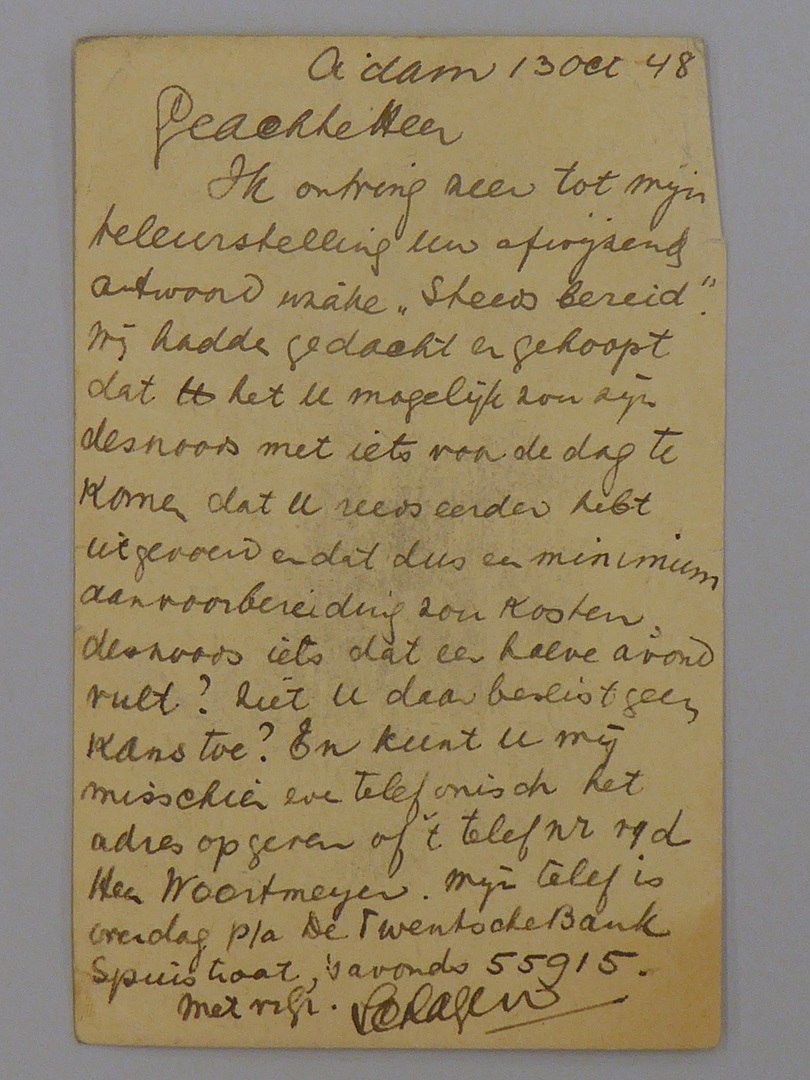 A'dam 13 Oct 48
Geachte Heer
Ik ontving zeer tot mijn
teleurstelling uw afwijzend
antwoord inzake „Steeds bereid".
Wij hadden gedacht en gehoopt
dat het U mogelijk zou zijn
desnoods met iets van de dag te
komen dat U reeds eerder hebt
uitgevoerd en dat dus een minimium
aanvoorbereiding zou kosten,
desnoods iets dat een halve avond
vult? Ziet U daar beslist geen
kans toe? En kunt U mij
misschien even telefonisch het
adres opgeven of 't telef nr v/d
Heer Woortmeyer. Mijn telef is
overdag p/a De Twentsche Bank
Spuistraat, 's avonds 55915.
Met vr. gr.